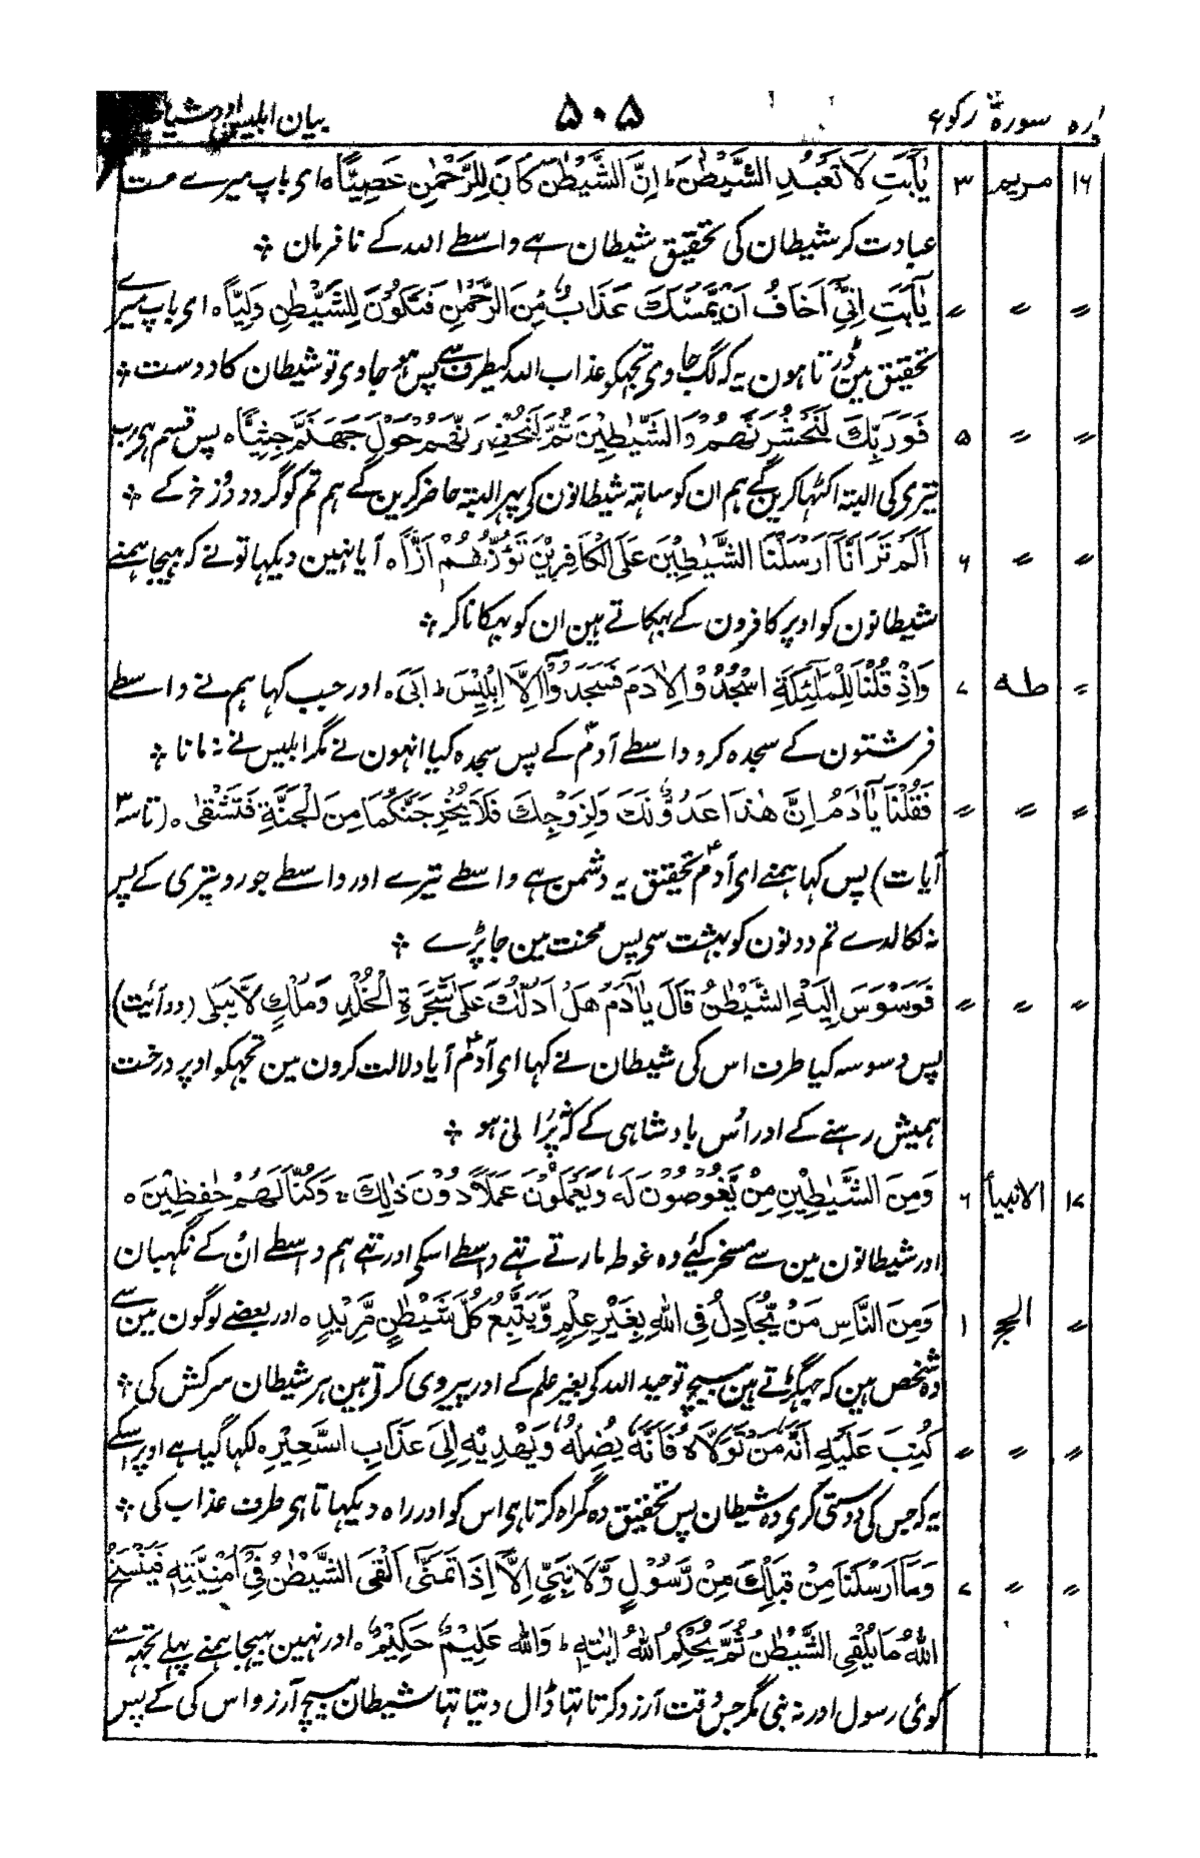 پارہ سورۃ رکوع ۵۰۵ بیان ابلیس اور شیاطین
۱۶ مریم ۳ يٰٓاَبَتِ لَا تَعْبُدِ الشَّيْطٰنَ ط اِنَّ الشَّيْطٰنَ كَانَ لِلرَّحْمٰنِ عَصِيًّا ہ ای باپ میرے مت
عبادت کر شیطان کی تحقیق شیطان ہے واسطے اللہ کے نافرمان ∻
〃 〃 〃 يٰٓاَبَتِ اِنِّيْٓ اَخَافُ اَنْ يَّمَسَّكَ عَذَابٌ مِّنَ الرَّحْمٰنِ فَتَكُوْنَ لِلشَّيْطٰنِ وَلِيًّا ہ ای باپ میرے
تحقیق مین ڈرتا ہون یہ کہ لگ جاوی تجھکو عذاب اللہ کیطرف سے پس ہو جاوی تو شیطان کا دوست ∻
〃 〃 ۵ فَوَرَبِّكَ لَنَحْشُرَنَّهُمْ وَالشَّيٰطِيْنَ ثُمَّ لَنُحْضِرَنَّهُمْ حَوْلَ جَهَنَّمَ جِثِيًّا ہ پس قسم ہی رب
تیری کی البتہ اکٹہا کرین گے ہم ان کو ساتہ شیطانون کی پہر البتہ حاضر کرین گے ہم تم کو گرد دوزخ کے ∻
〃 〃 ۶ اَلَمْ تَرَ اَنَّآ اَرْسَلْنَا الشَّيٰطِيْنَ عَلَى الْكَافِرِيْنَ تَؤُزُّهُمْ اَزًّا ہ آیا نہین دیکہا تونے کہ بہیجا ہمنے
شیطانون کو اوپر کافرون کے بہکاتے ہین ان کو بہکانا کر ∻
〃 طہ ۷ وَاِذْ قُلْنَا لِلْمَلٰٓئِكَةِ اسْجُدُوْا لِاٰدَمَ فَسَجَدُوْٓا اِلَّآ اِبْلِيْسَ ط اَبٰى ہ اور جب کہا ہم نے واسطے
فرشتون کے سجدہ کرو واسطے آدمؑ کے پس سجدہ کیا انہون نے مگر ابلیس نے نہ مانا ∻
〃 〃 〃 فَقُلْنَا يٰٓاٰدَمُ اِنَّ هٰذَا عَدُوٌّ لَّكَ وَلِزَوْجِكَ فَلَا يُخْرِجَنَّكُمَا مِنَ الْجَنَّةِ فَتَشْقٰى ہ (تا سہ
آیات) پس کہا ہمنے ای آدمؑ تحقیق یہ دشمن ہے واسطے تیرے اور واسطے جورو تیری کے پس
نہ نکالدے تم دونون کو بہشت سی پس محنت مین جا پڑے ∻
〃 〃 〃 فَوَسْوَسَ اِلَيْهِ الشَّيْطٰنُ قَالَ يٰٓاٰدَمُ هَلْ اَدُلُّكَ عَلٰى شَجَرَةِ الْخُلْدِ وَمُلْكٍ لَّا يَبْلٰى (دو آئیت)
پس وسوسہ کیا طرف اس کی شیطان نے کہا ای آدمؑ آیا دلالت کرون مین تجہکو اوپر درخت
ہمیش رہنے کے اور اُس بادشاہی کے کہ پُرانی نہو ∻
۱۷ الانبیأ ۶ وَمِنَ الشَّيٰطِيْنِ مَنْ يَّغُوْصُوْنَ لَهٗ وَيَعْمَلُوْنَ عَمَلًا دُوْنَ ذٰلِكَ ج وَكُنَّا لَهُمْ حٰفِظِيْنَ ہ
اور شیطانون مین سے مسخر کیئے وہ غوطہ مارتے تہے واسطے اسکی اور تہے ہم واسطے اُن کے نگہبان
〃 الحج ۱ وَمِنَ النَّاسِ مَنْ يُّجَادِلُ فِي اللهِ بِغَيْرِ عِلْمٍ وَّيَتَّبِعُ كُلَّ شَيْطٰنٍ مَّرِيْدٍ ہ اور بعضے لوگون مین سے
وہ شخص ہین کہ جہگڑتے ہین بیچ توحید اللہ کی بغیر علم کے اور پیروی کرتی ہین ہر شیطان سرکش کی ∻
〃 〃 〃 كُتِبَ عَلَيْهِ اَنَّهٗ مَنْ تَوَلَّاهُ فَاَنَّهٗ يُضِلُّهٗ وَيَهْدِيْهِ اِلٰى عَذَابِ السَّعِيْرِ ہ لکہا گیا ہے اوپر اسکے
یہ کہ جس کی دوستی کری وہ شیطان پس تحقیق وہ گمراہ کرتا ہی اس کو اور راہ دیکہاتا ہی طرف عذاب کی ∻
〃 〃 ۷ وَمَآ اَرْسَلْنَا مِنْ قَبْلِكَ مِنْ رَّسُوْلٍ وَّلَا نَبِيٍّ اِلَّآ اِذَا تَمَنّٰى اَلْقَى الشَّيْطٰنُ فِيْٓ اُمْنِيَّتِهٖ فَيَنْسَخُ
اللهُ مَا يُلْقِي الشَّيْطٰنُ ثُمَّ يُحْكِمُ اللهُ اٰيٰتِهٖ ط وَاللهُ عَلِيْمٌ حَكِيْمٌ ہ اور نہین بہیجا ہمنے پہلے تجہہ سے
کوئی رسول اور نہ نبی مگر جس وقت آرزو کرتا تہا ڈال دیتا تہا شیطان بیچ آرزو اس کی کے پس